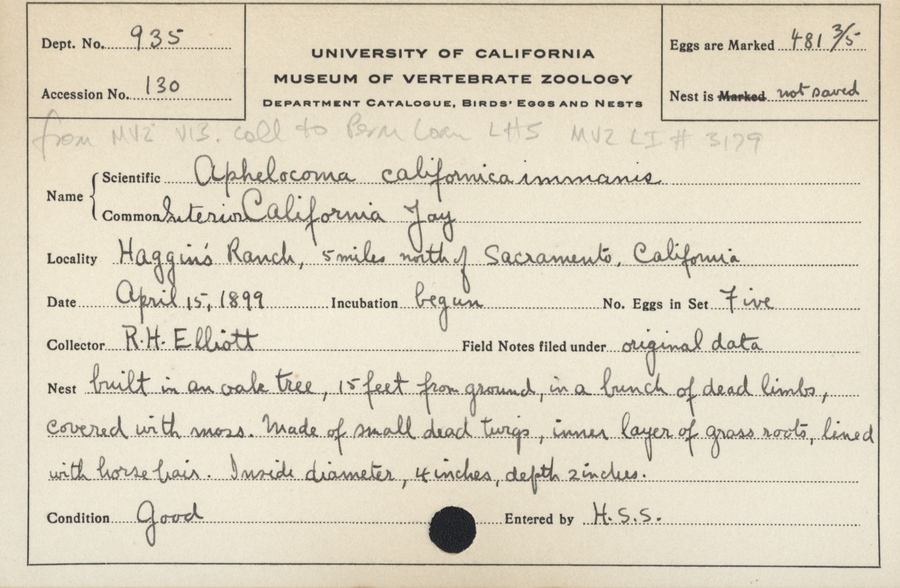 Dept. No. 935
Accession No. 130
UNIVERSITY OF CALIFORNIA
MUSEUM OF VERTEBRATE ZOOLOGY
DEPARTMENT CATALOGUE, BIRDS' EGGS AND NESTS
Eggs are Marked 481 3/5
Nest is Marked not saved
from MVZ VIS. coll to Perm Loan LHS MVZ LI # 3179
Name Scientific Aphelocoma californica immanis
Common Interior California Jay
Locality Haggin's Ranch, 5 miles north of Sacramento, California
Date April 15, 1899 Incubation begun No. Eggs in Set Five
Collector R.H. Elliott Field Notes filed under original data
Nest built in an oak tree, 15 feet from ground, in a bunch of dead limbs,
covered with moss. Made of small dead twigs, inner layer of grass roots, lined
with horse hair. Inside diameter, 4 inches, depth 2 inches.
Condition Good Entered by H.S.S.